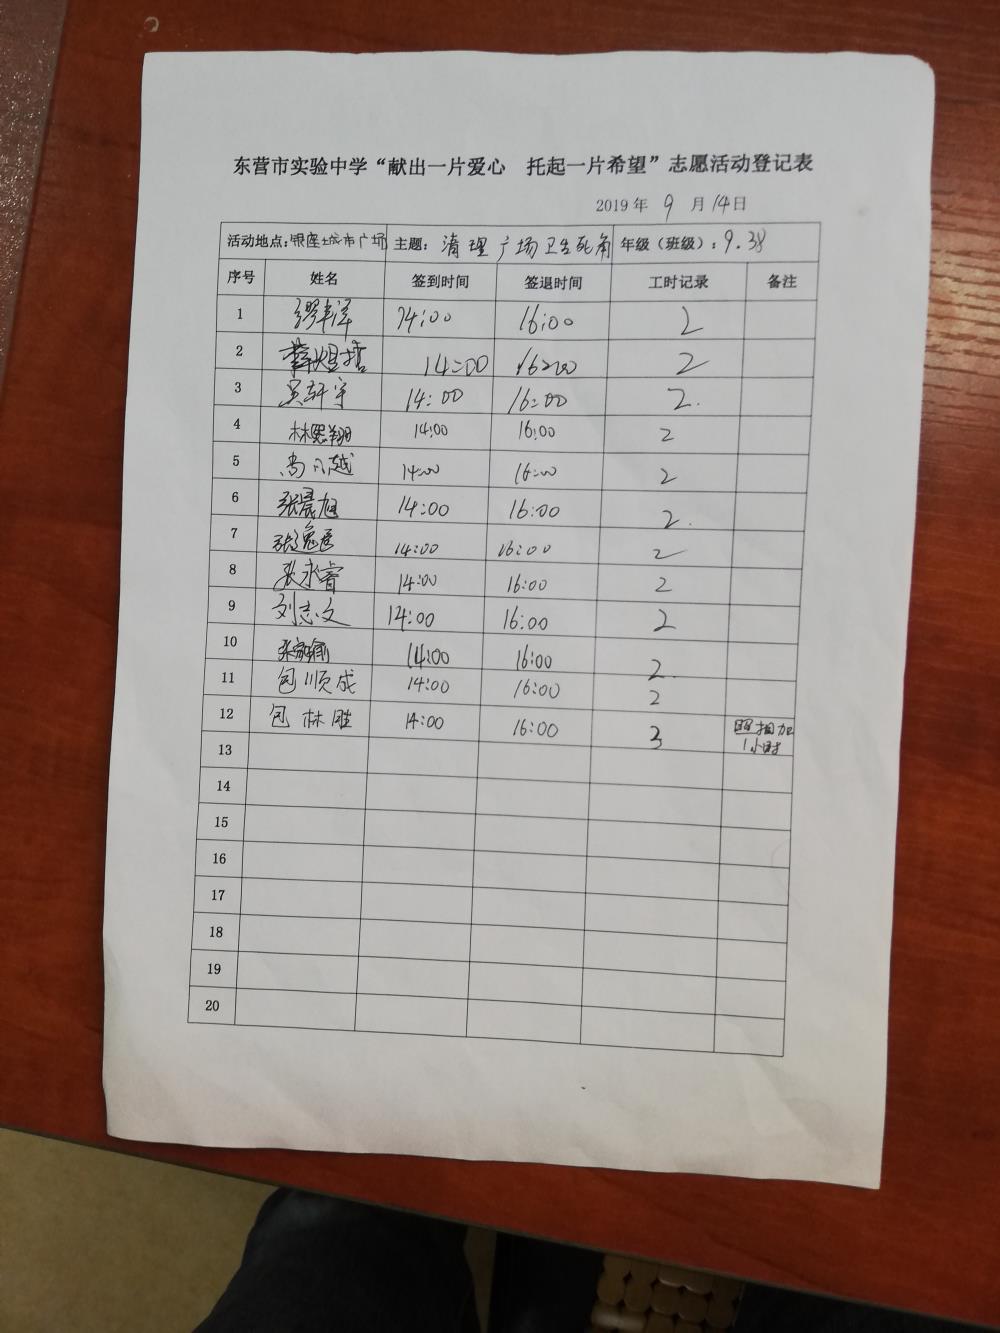 东营市实验中学“献出一片爱心 托起一片希望”志愿活动登记表
2019 年 9 月 14 日
活动地点：银座城市广场 主题：清理广场卫生死角 年级（班级）：9.38
序号 姓名 签到时间 签退时间 工时记录 备注
1 缪丰泽 14:00 16:00 2
2 14:00 16:00 2
3 吴轩宇 14:00 16:00 2.
4 林熙翔 14:00 16:00 2
5 尚凡越 14:00 16:00 2
6 张晨旭 14:00 16:00 2.
7 14:00 16:00 2
8 张永睿 14:00 16:00 2
9 刘志文 14:00 16:00 2
10 14:00 16:00 2.
11 包顺成 14:00 16:00 2
12 包林胜 14:00 16:00 3 照相加
1小时
13
14
15
16
17
18
19
20